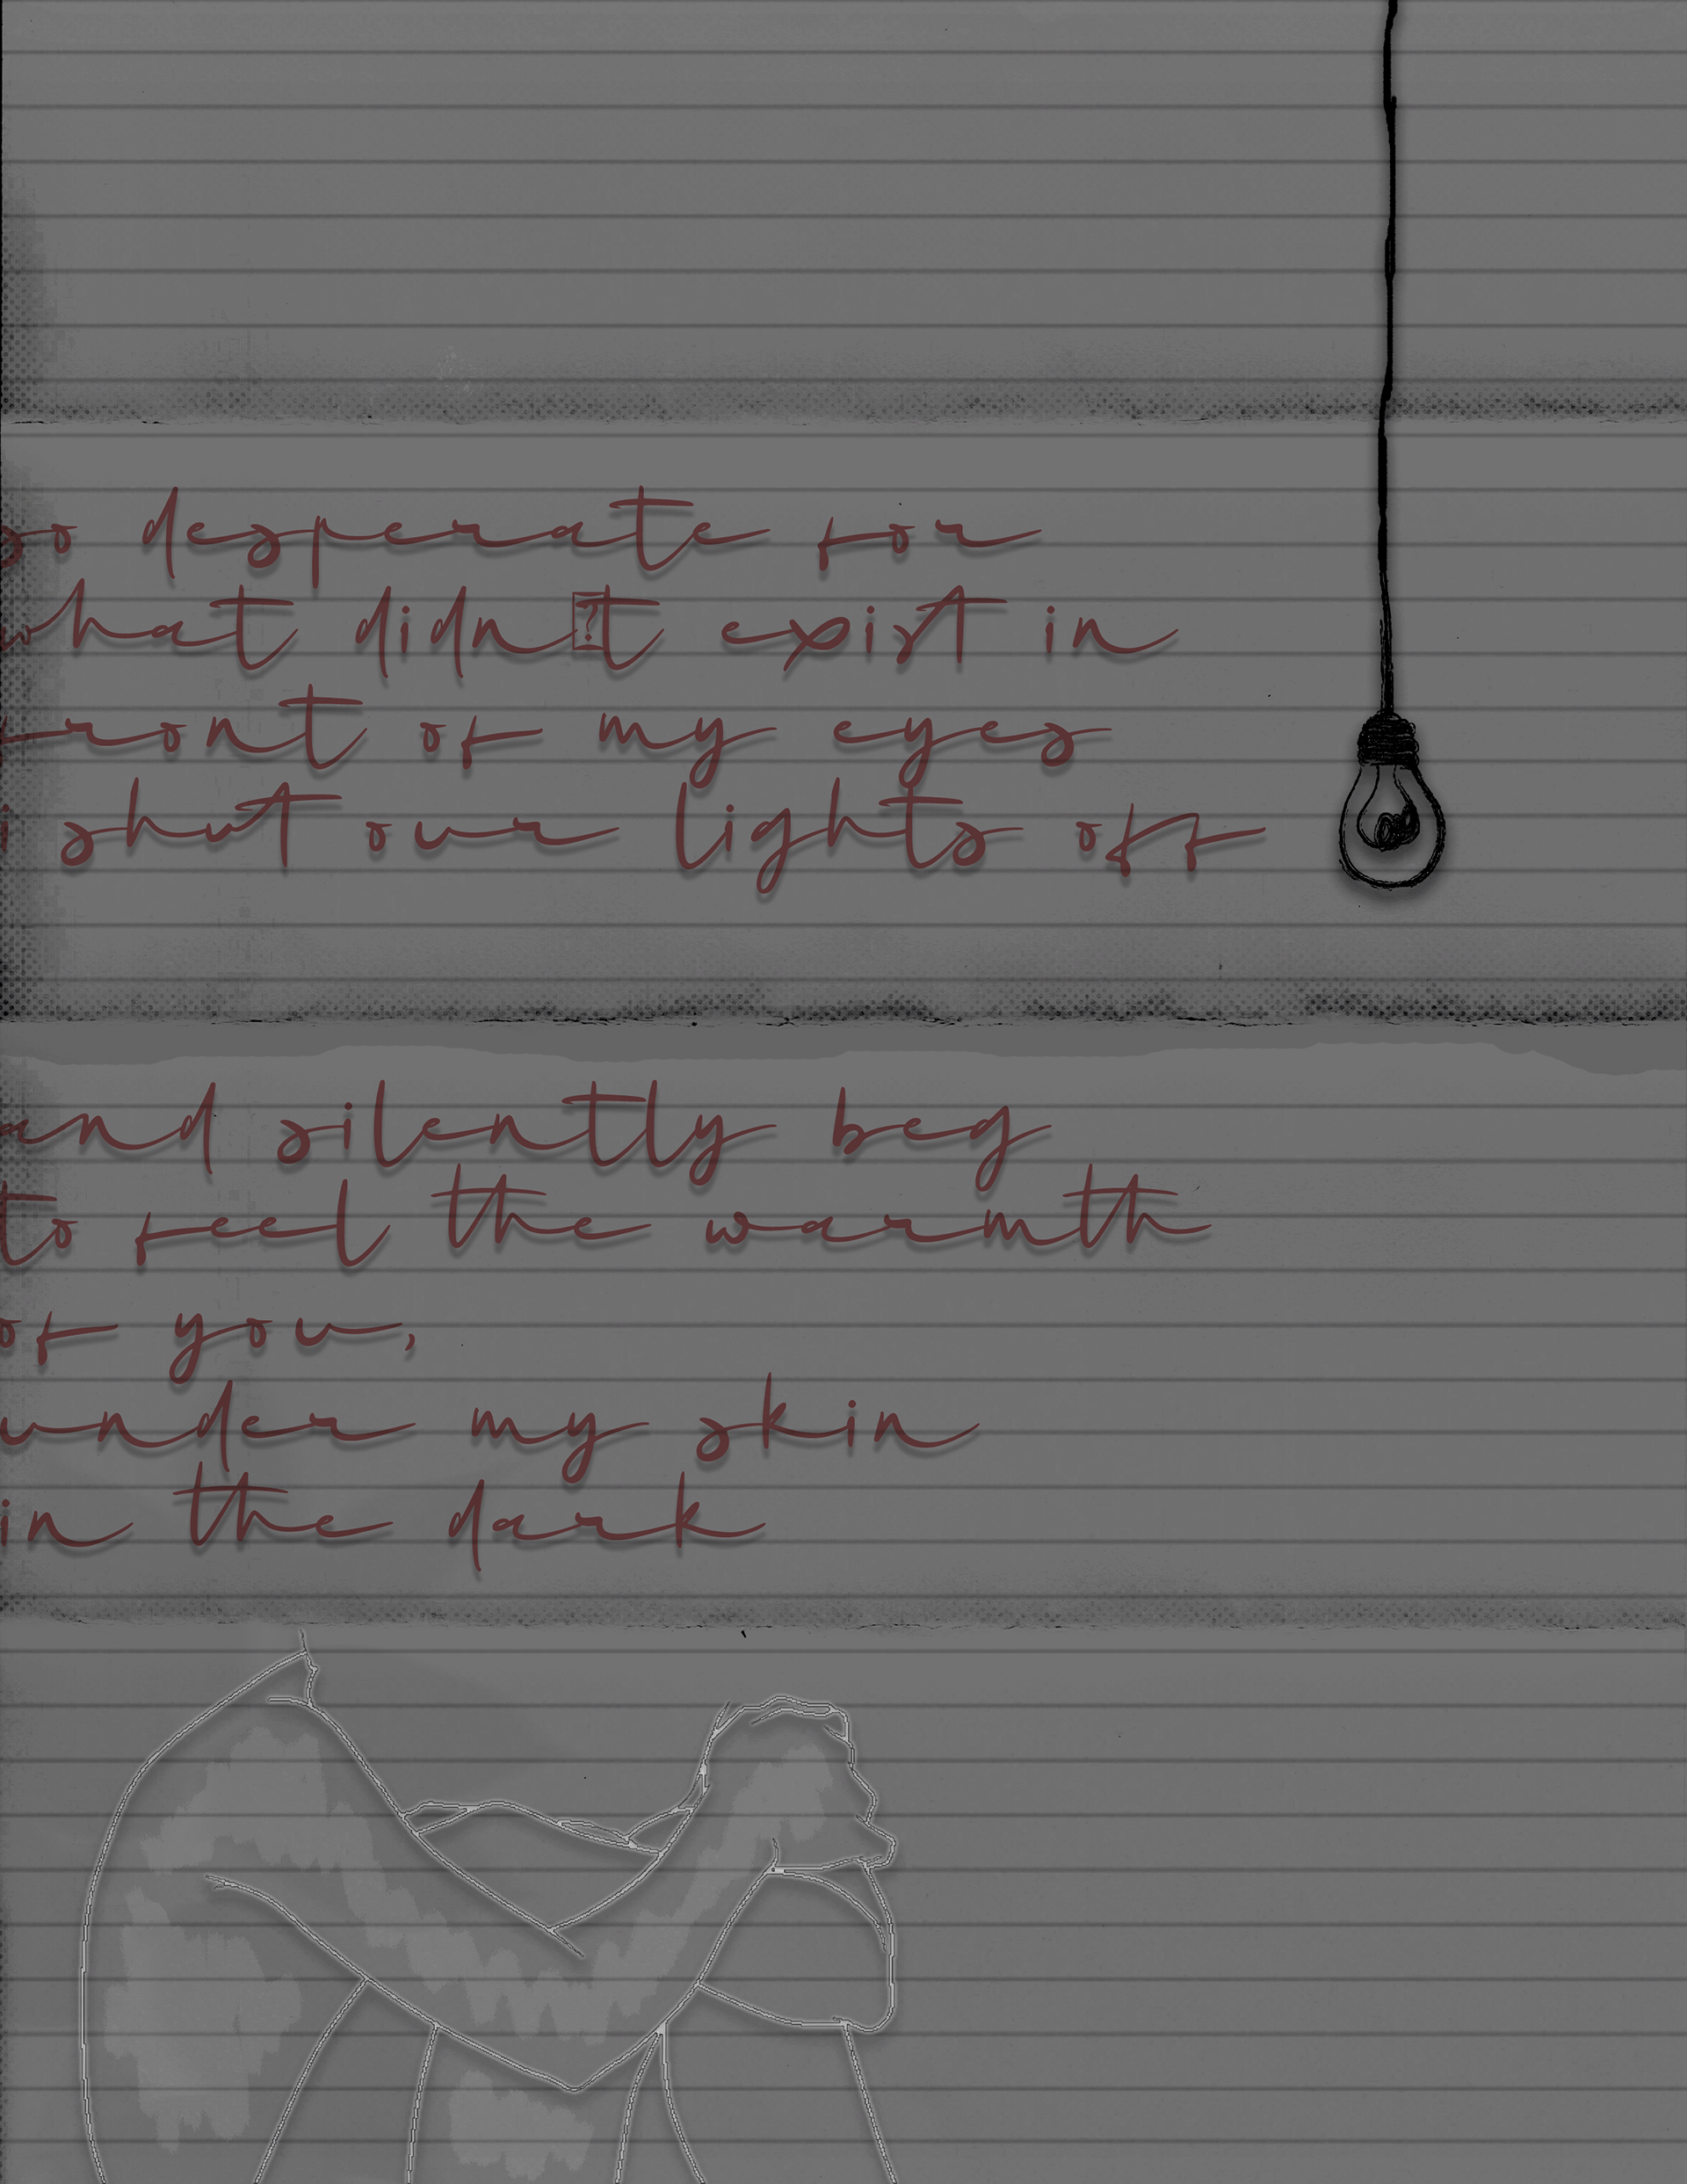 so desperate for
what didn�t exist in
front of my eyes
i shut our lights off
and silently beg
to feel the warmth
of you,
under my skin
in the dark